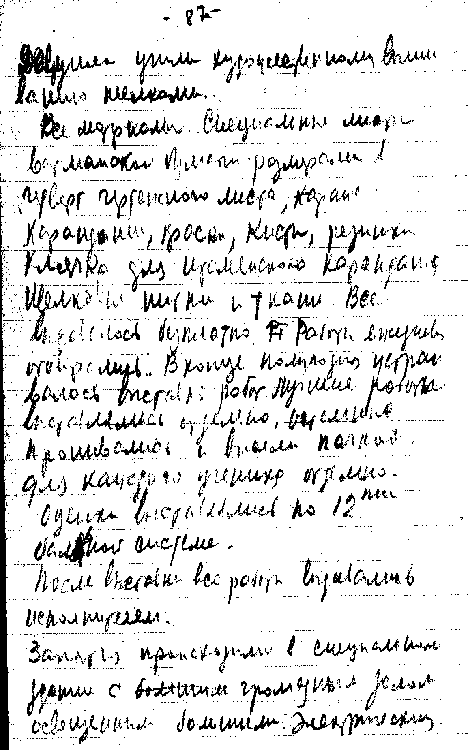 - 87 -
Девушка учили художественному выши
ванию шелками.
Все моржами. Специальные листы
ватманской бумаги размерами в
четверть чертежного листа, каран
карандаши, краски, кисти, резинки
клячка для итальянского карандаша
Шелковые нитки и ткани. Все
выдавалось бесплатно. Работы ежеднев
отбирались. В конце полугодия устраи
валось выставка работ. Лучшие работы
выставлялись отдельно, остальные
прошивались и висели пачкой
для каждого ученика отдельно.
Оценки выставлялись по 12ти
бальной системе.
После выставки все работы выдавались
исполнителям.
Занятия происходили в специальном
здании с большим громадным залом
освещенным большими электрически